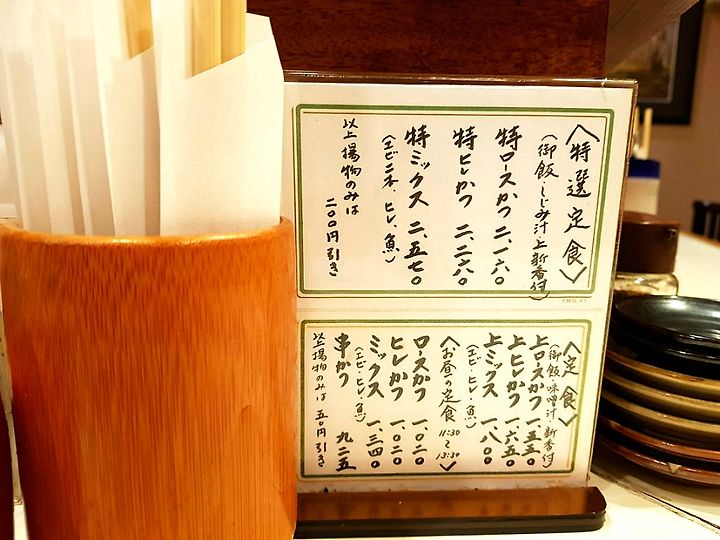 〈特選定食〉
(御飯・しじみ汁上新香付)
特ロースかつ 二、一六〇
特ヒレかつ 二、二六〇
特ミックス 二、五七〇
(エビ二本、ヒレ、魚)
以上揚物のみは
二〇〇円引き
〈定食〉
(御飯・味噌汁 新香付)
上ロースかつ 一、五五〇
上ヒレかつ 一、六五〇
上ミックス 一、八〇〇
(エビ・ヒレ・魚)
〈お昼の定食 11:30〜13:30〉
ロースかつ 一、〇二〇
ヒレかつ 一、〇二〇
ミックス 一、三四〇
(エビ・ヒレ・魚)
串かつ 九二五
以上揚物のみは 五〇円引き